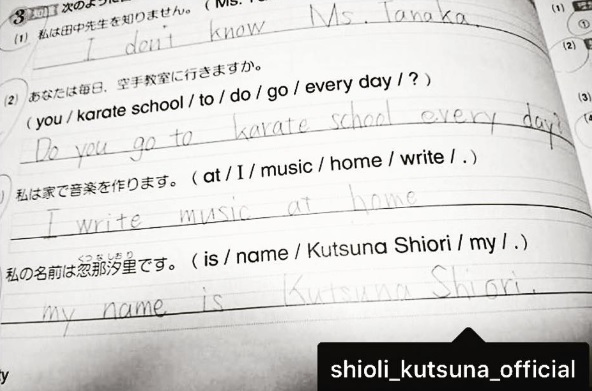 3 次のように
(1) 私は田中先生を知りません。 ( Ms.
I don't know Ms. Tanaka.
(2) あなたは毎日、空手教室に行きますか。
( you / karate school / to / do / go / every day / ? )
Do you go to karate school every day?
私は家で音楽を作ります。 ( at / I / music / home / write / . )
I write music at home
くつなしおり
私の名前は忽那汐里です。 ( is / name / Kutsuna Shiori / my / . )
my name is Kutsuna Shiori.
shioli_kutsuna_official
(1)
①
(2)
(3)